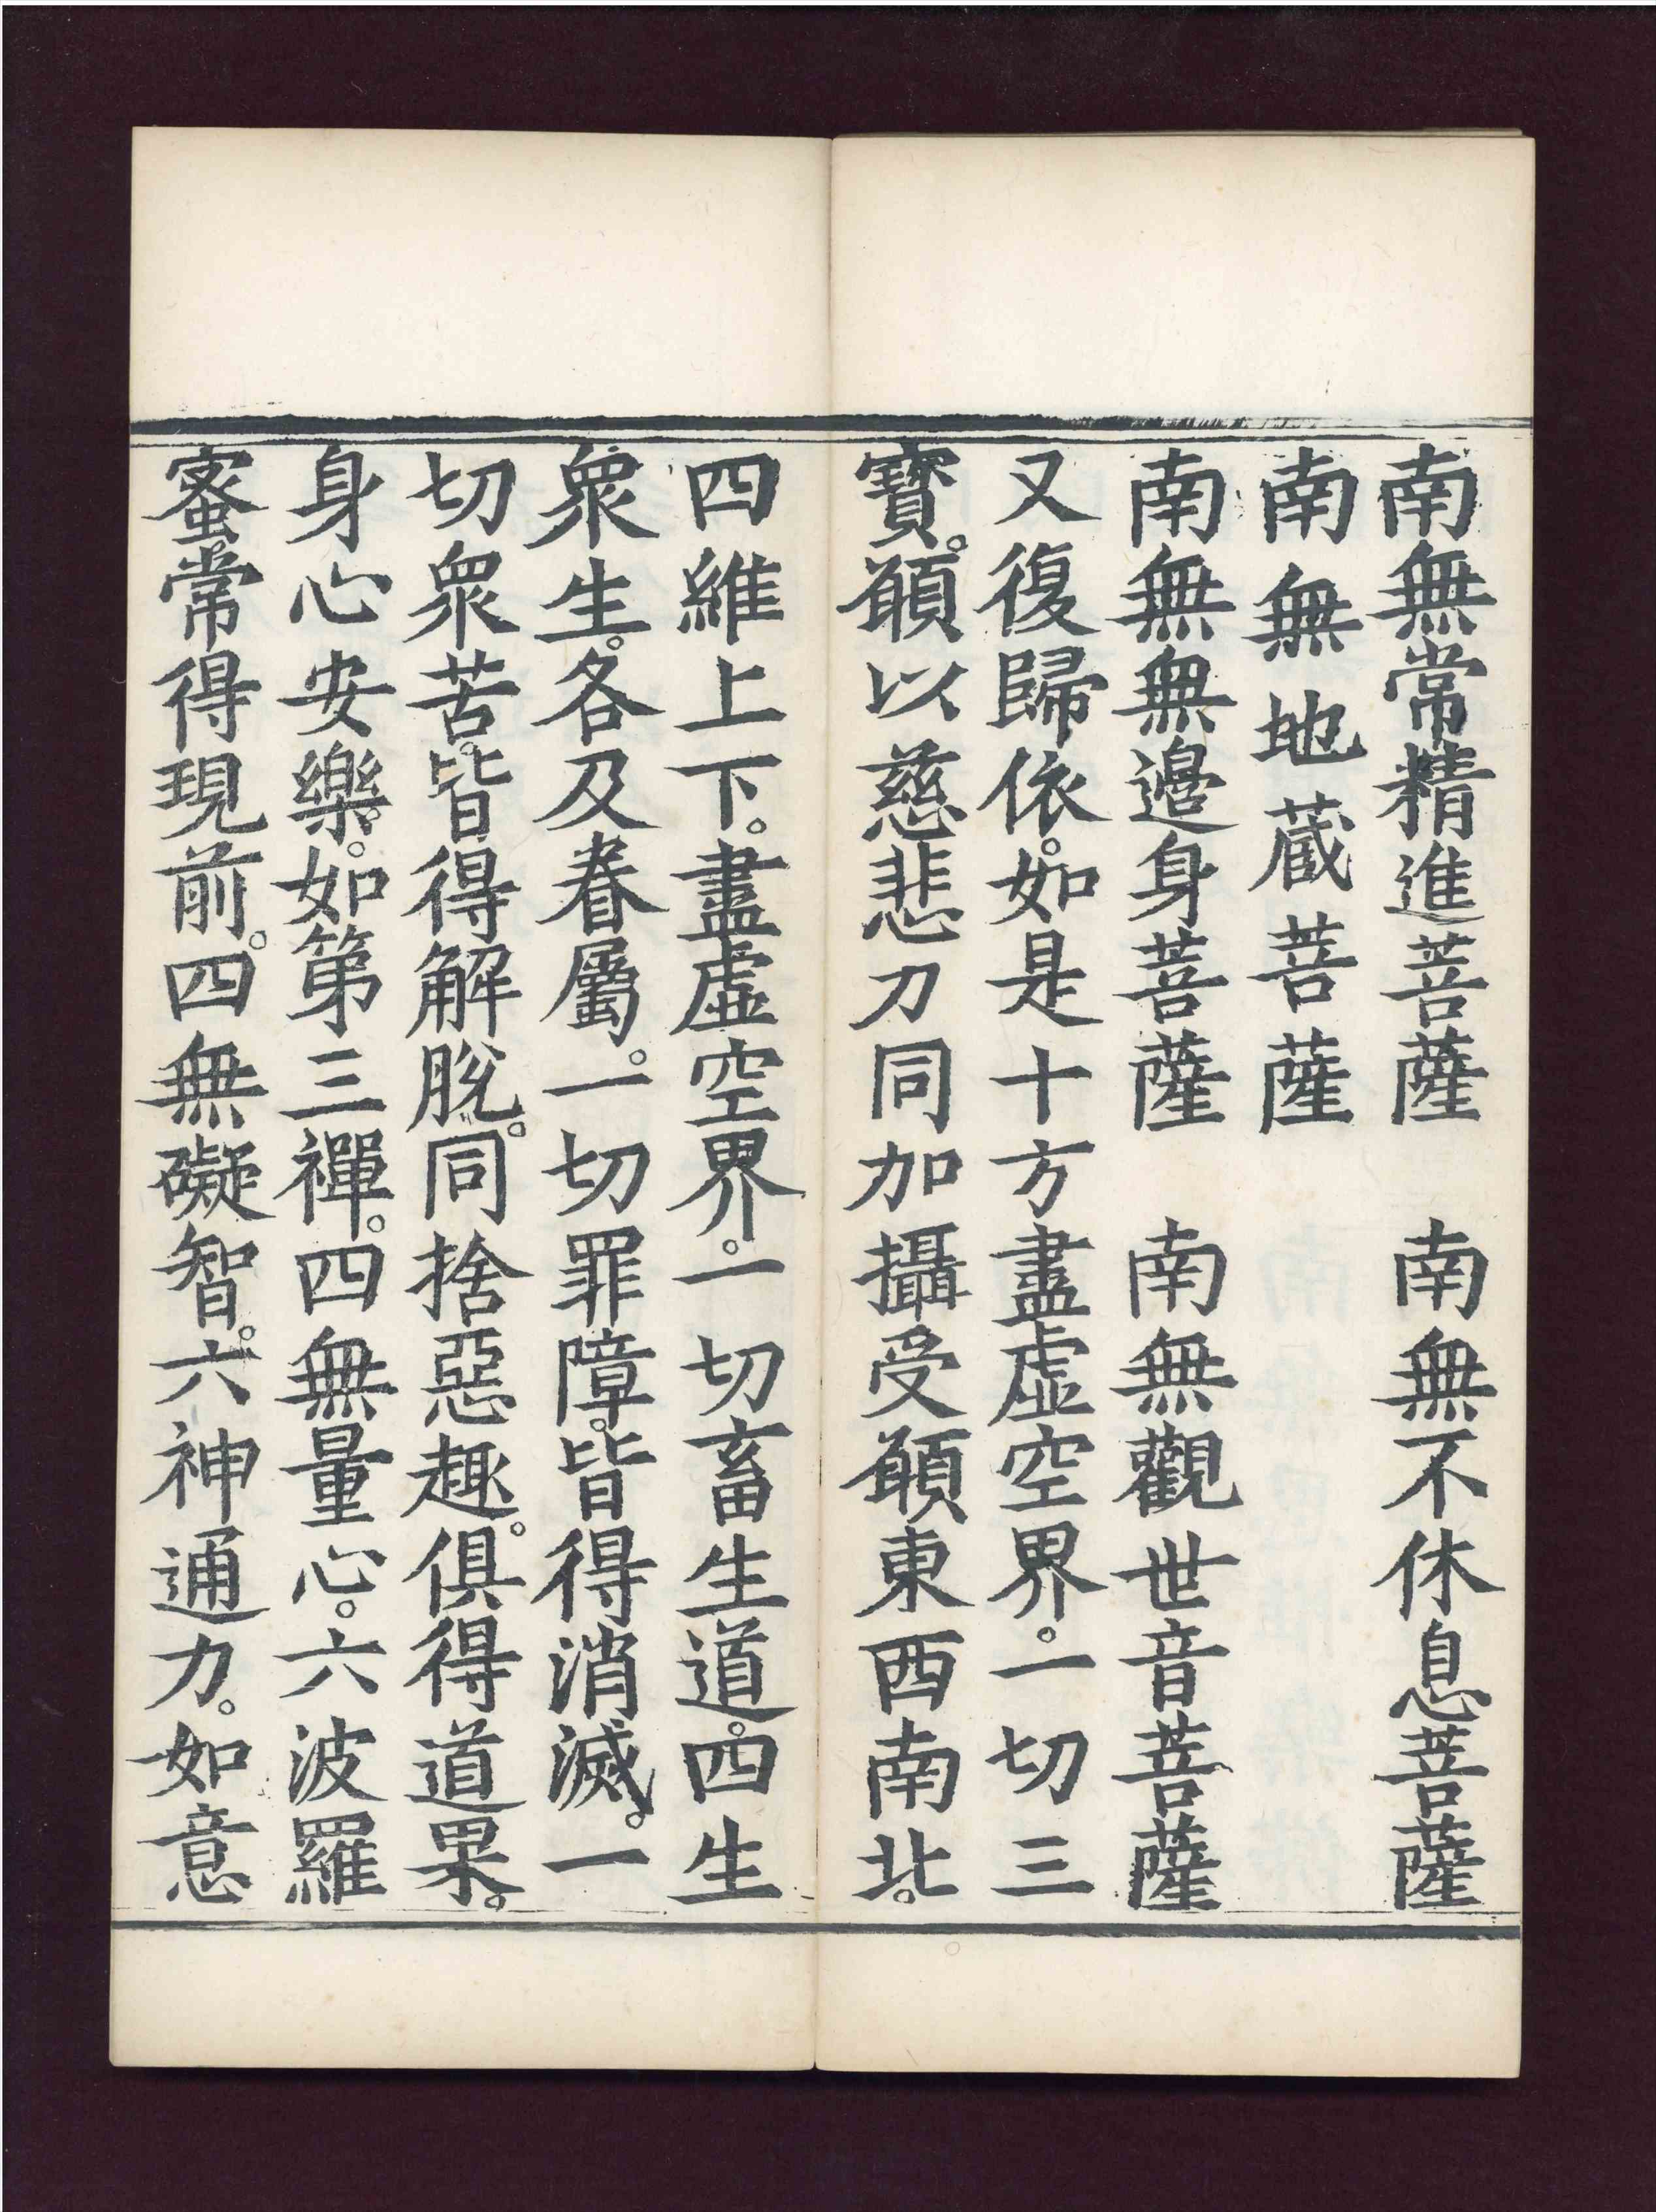 南無常精進菩薩　南無不休息菩薩
南無地藏菩薩
南無無邊身菩薩　南無觀世音菩薩
又復歸依。如是十方盡虛空界。一切三
寶。願以慈悲力同加攝受願東西南北。
四維上下。盡虛空界。一切畜生道。四生
眾生。各及眷屬。一切罪障。皆得消滅。一
切眾苦。皆得解脫。同捨惡趣。俱得道果。
身心安樂。如第三禪。四無量心。六波羅
蜜常得現前。四無礙智。六神通力。如意